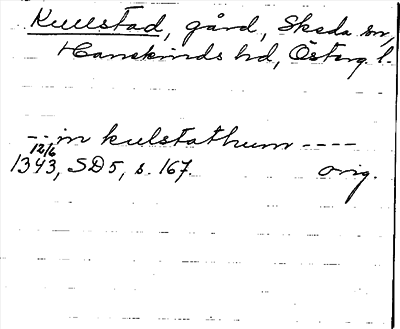 Kullstad, gård, Skeda sn,
Hanekinds hd, Österg. l.
-- in kulstathum ----
12/6
1343, SD 5, s. 167. orig.